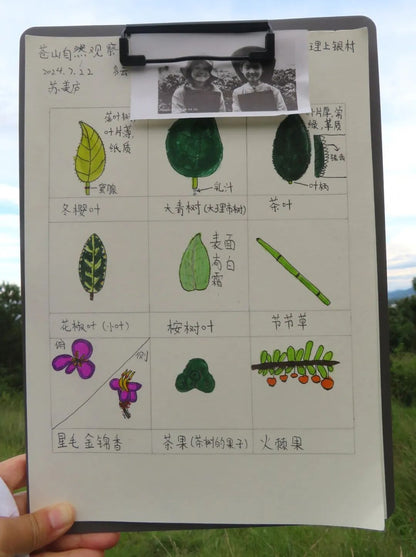 苍山自然观察
理上银村
2024.7.22
多云
苏麦启
落叶树,
叶片薄,
纸质
蜜腺
乳汁
叶片厚,常
绿,革质
锯齿
叶柄
冬樱叶
大青树(大理市树)
茶叶
表面
有白
霜
花椒叶(小叶)
桉树叶
节节草
俯
侧
星毛金锦香
茶果(茶树的果子)
火棘果